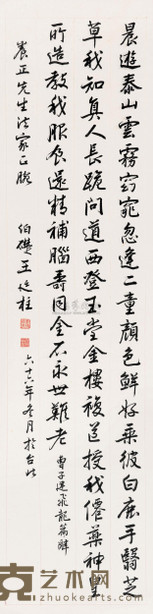 晨遊泰山雲霧窈窕忽逢二童顏色鮮好乘彼白鹿手翳芝
草我知真人長跪問道西登玉堂金樓複道授我僊藥神皇
所造教我服食還精補腦壽同金石永世難老 曹子建飛龍篇辭
養正先生法家正腕 伯礎王廷柱 六十六年冬月於台北